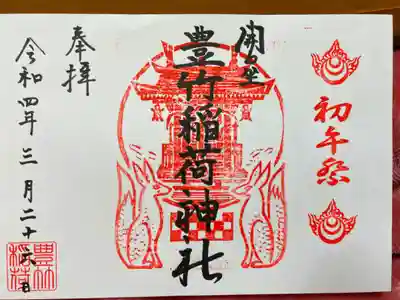 初午祭
開
豊竹稲荷神社
奉拝
令和四年三月二十六日
豊竹
稲荷